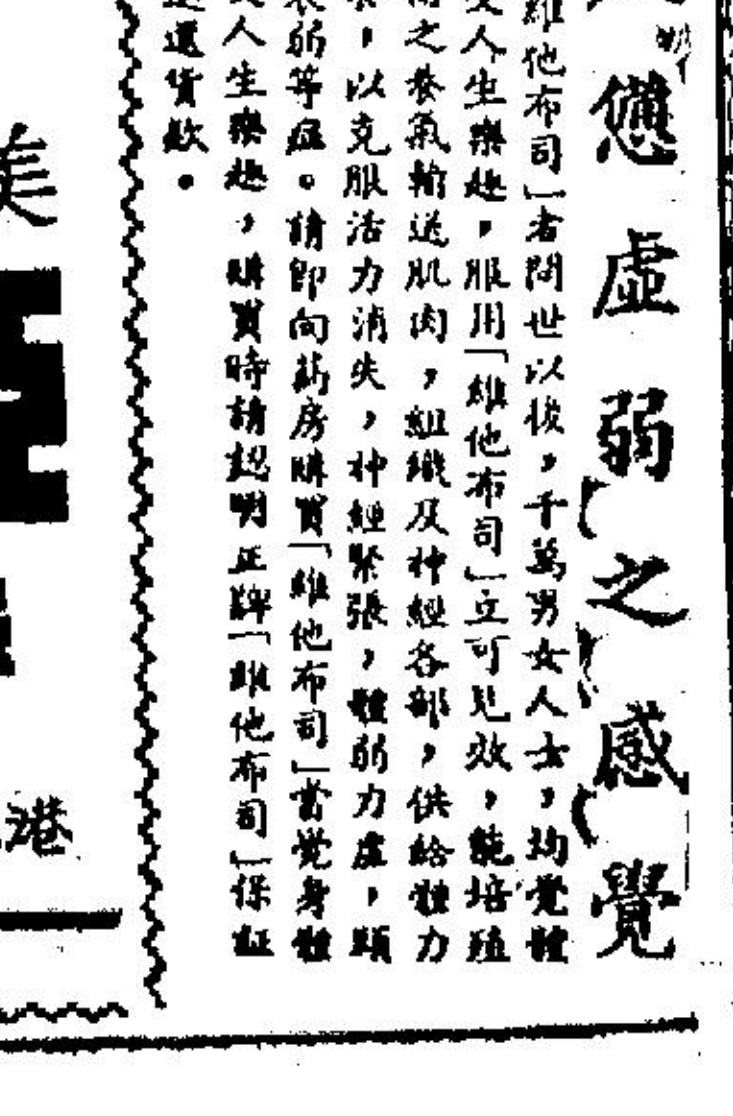 憊虛弱之感覺
維他布司」者問世以後，千萬男女人士，均覺體
人生樂趣，服用「維他布司」立可見效，能培殖
之養氣輸送肌肉，組織及神經各部，供給體力
，以克服活力消失，神經緊張，體弱力虛，顯
弱等症。請即向葯房購買「維他布司」當覺身體
人生樂趣，購買時請認明正牌「維他布司」保証
還貨款。
美
港